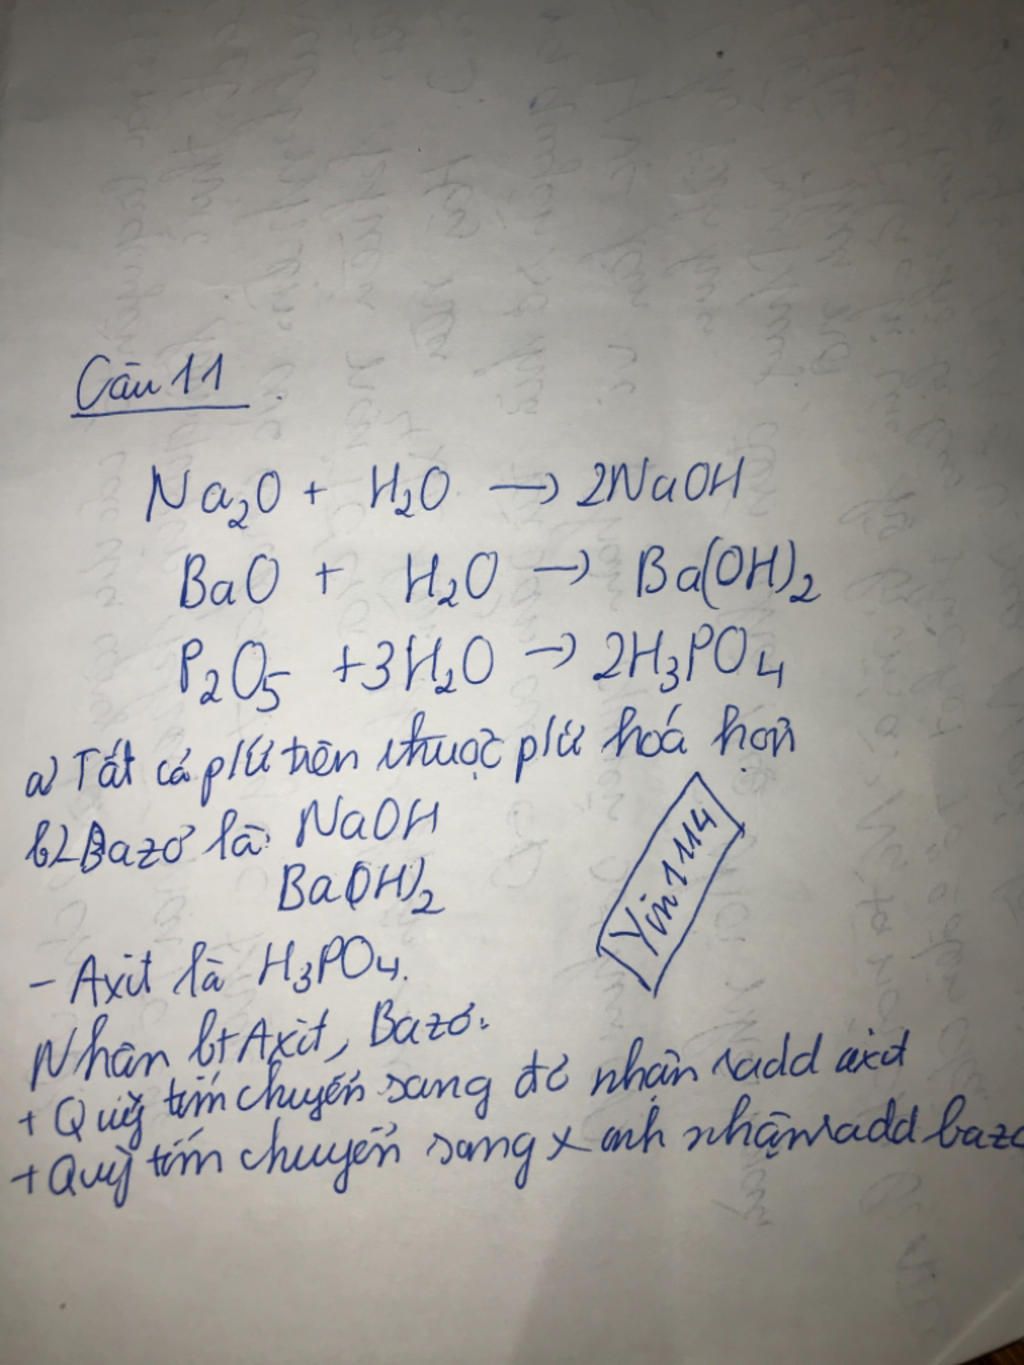 Câu 11
Na₂O + H₂O → 2NaOH
BaO + H₂O → Ba(OH)₂
P₂O₅ +3H₂O → 2H₃PO₄
a) Tất cả pứ trên thuộc pứ hoá hợp
b) Bazơ là: NaOH
Ba(OH)₂
- Axit là H₃PO₄.
Nhận bt Axit, Bazơ:
+ Quỳ tím chuyển sang đỏ nhận ra dd axit
+ Quỳ tím chuyển sang xanh nhận ra dd bazơ
Yin1114